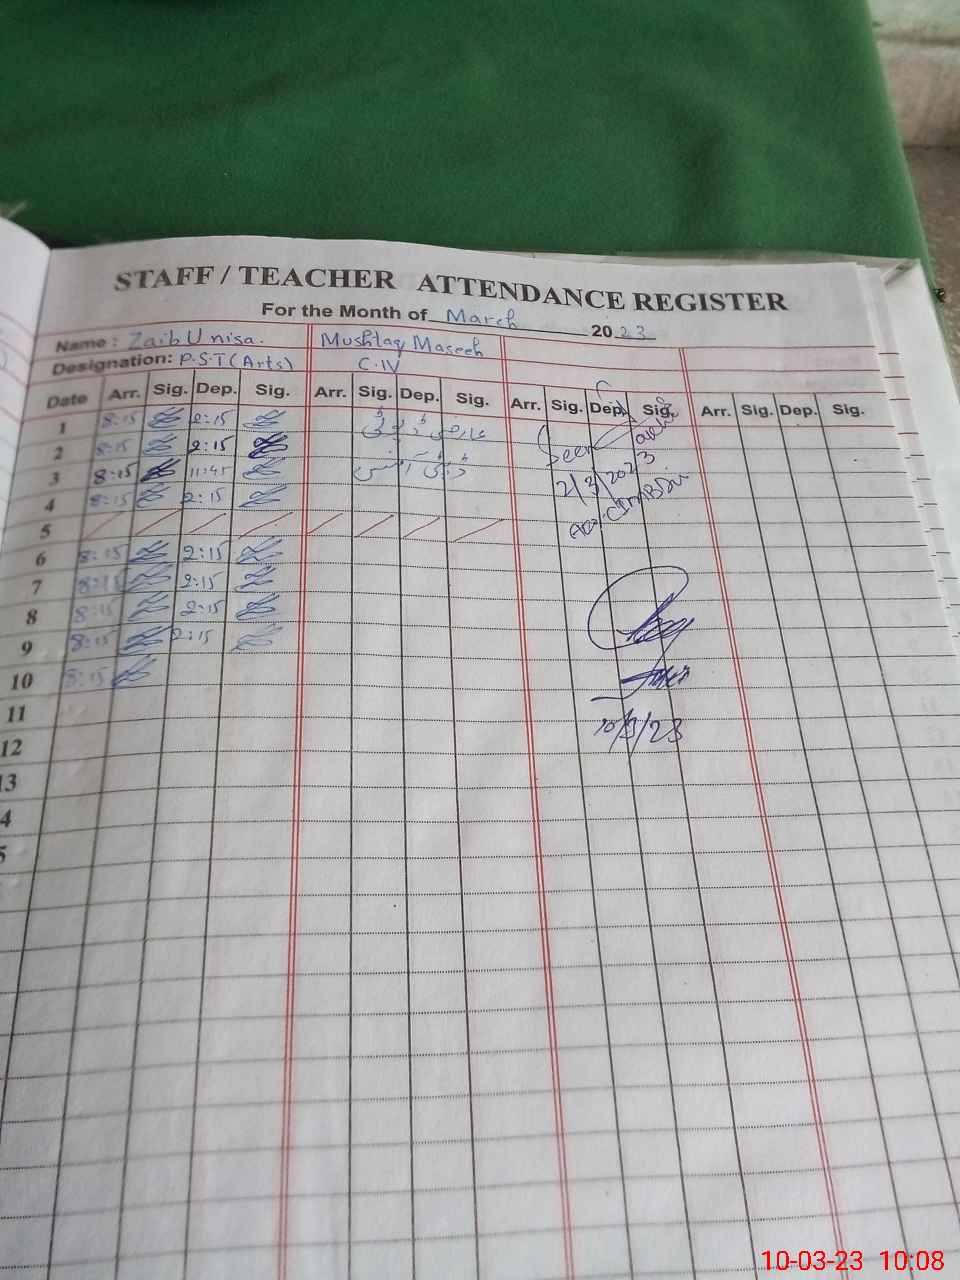 STAFF / TEACHER ATTENDANCE REGISTER
For the Month of March 2023
Name : Zaib U nisa. Mushtaq Maseeh
Designation: P.S.T (Arts) C.IV
Date Arr. Sig. Dep. Sig. Arr. Sig. Dep. Sig. Arr. Sig. Dep. Sig. Arr. Sig. Dep. Sig.
1 8:15 2:15 عارضی ڈیوٹی
2 8:15 2:15 Seen
3 8:15 11:45 ڈی آفس 2/3/2023
4 8:15 2:15
5
6 8:15 2:15
7 8:15 2:15
8 8:15 2:15
9 8:15 2:15
10 8:15
11 10/3/23
12
13
4
5
10-03-23 10:08